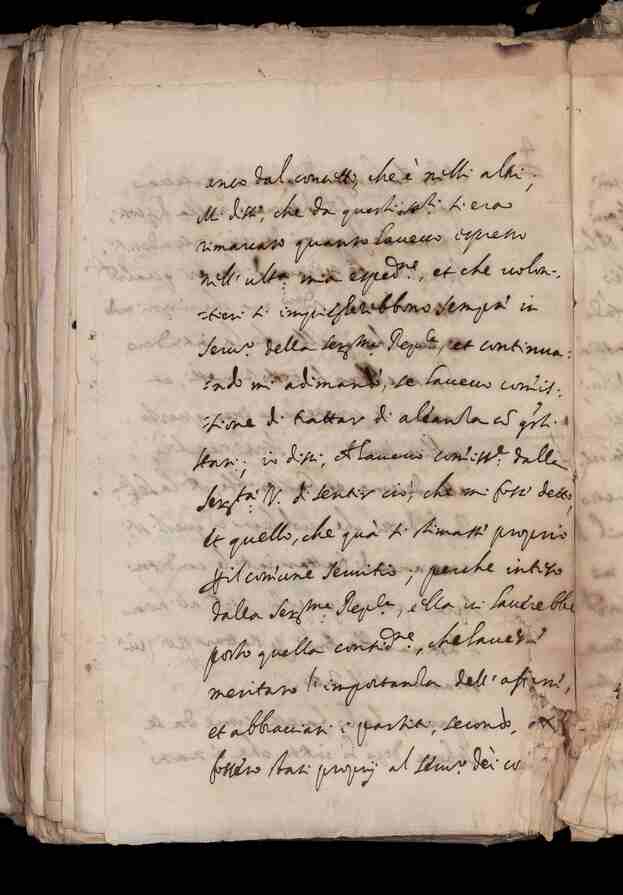 anco dal concetto, che è nelli altri;
Mi disse, che da questi SS.ri si era
rimarcato quanto havevo espresso
nell' ult.a mia esped.ne, et che volon-
tieri si impiegherebbono sempre in
serv.o della Ser.ma Rep.ca, et continua-
ndo mi adimandò, se havevo comis-
sione di trattar di aleanza cō q.sti
stati; io dissi, che havevo comiss.ne dalla
Ser.tà V. di sentir ciò, che mi fosse detto,
et quello, che quà si stimasse proprio
p il comune servitio; perche inteso
dalla Ser.ma Rep.ca, ella vi haverebbe
posto quella consid.ne, che havesse
meritato l' importanza dell' affare,
et abbracciati i partiti, secondo,
fossero stati proprij al serv.o dei co